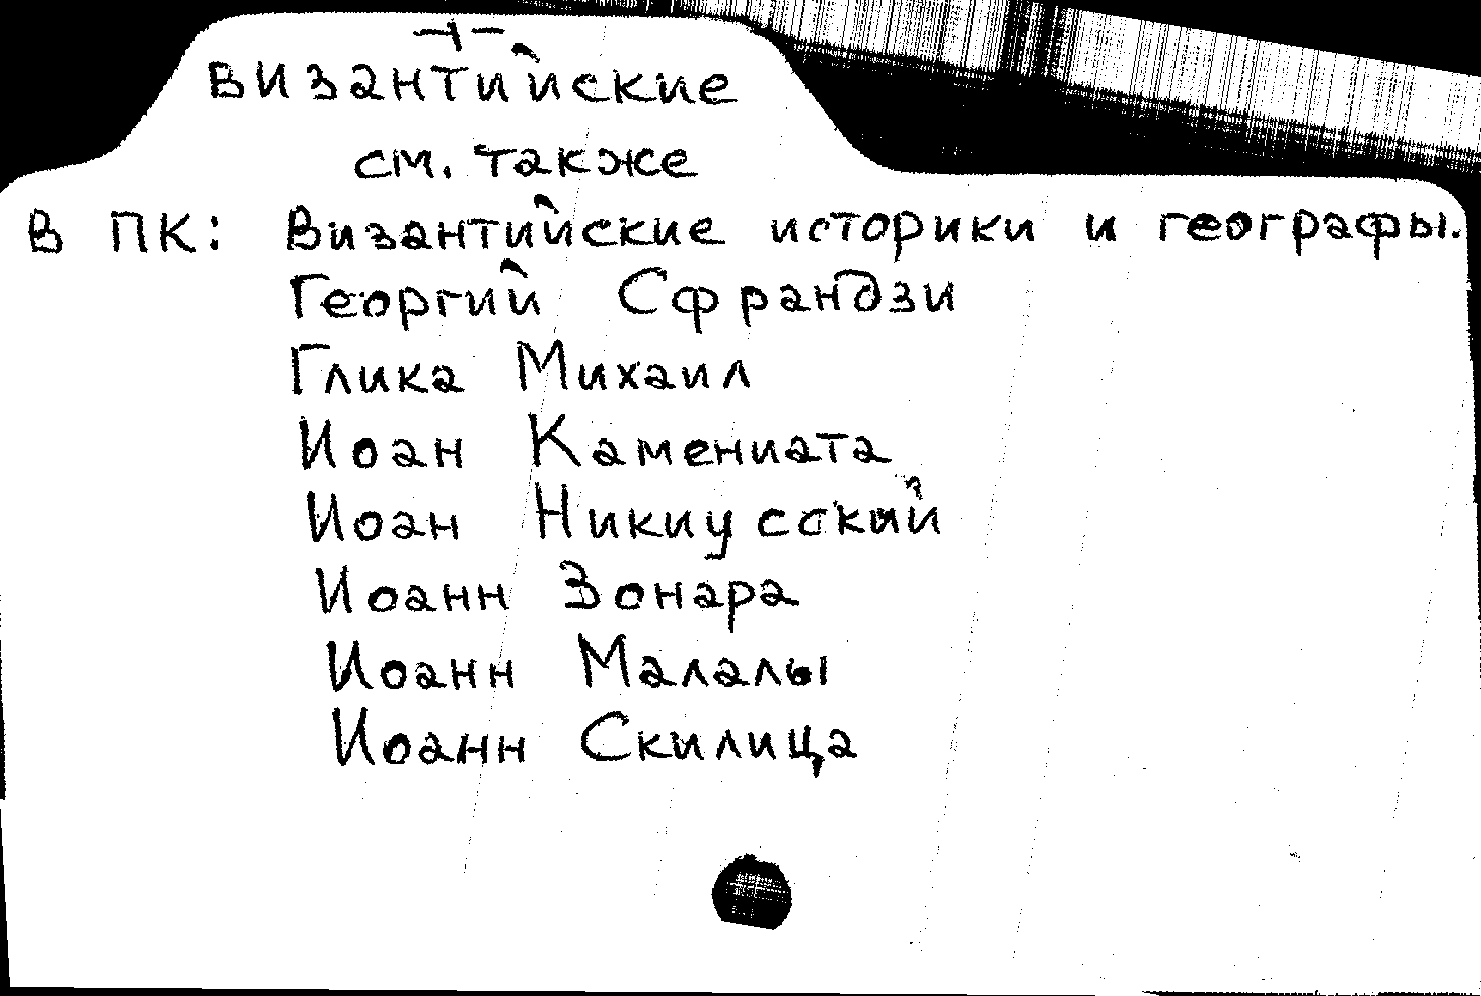 византийские
см. также
В ПК: Византийские историки и географы.
Георгий Сфрандзи
Глика Михаил
Иоан Камениата
Иоан Никиусский
Иоанн Зонара
Иоанн Малалы
Иоанн Скилица